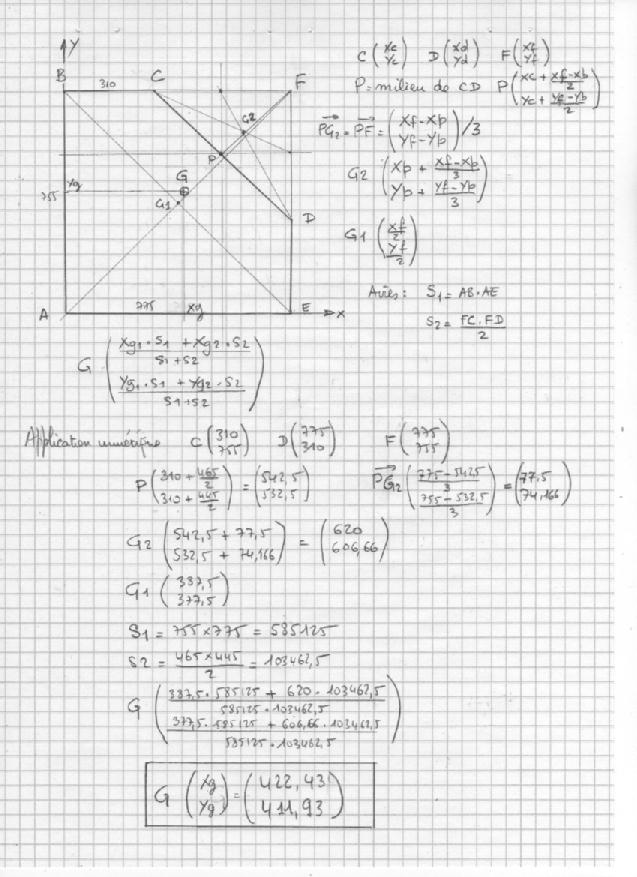 Y
B 310 C F
G2
P
Xg G
755 G1
D
775 Xg
A E X
C (Xc Yc) D (Xd Yd) F (Xf Yf)
P = milieu de CD P (Xc + (Xf-Xb)/2 Yc + (Yf-Yb)/2)
PG2 = PF = (Xf-Xp Yf-Yp) /3
G2 (Xp + (Xf-Xp)/3 Yp + (Yf-Yp)/3)
G1 (Xf/2 Yf/2)
Aires : S1 = AB.AE
S2 = FC.FD/2
G ((Xg1.S1 + Xg2.S2)/(S1+S2) (Yg1.S1 + Yg2.S2)/(S1+S2))
Application numérique C (310 755) D (775 310) F (775 755)
P (310 + 465/2 310 + 445/2) = (542,5 532,5) PG2 ((775-542,5)/3 (755-532,5)/3) = (77,5 74,166)
G2 (542,5 + 77,5 532,5 + 74,166) = (620 606,66)
G1 (387,5 377,5)
S1 = 755 x 775 = 585125
S2 = 465 x 445/2 = 103462,5
G ((387,5.585125 + 620.103462,5)/(585125.103462,5) (377,5.585125 + 606,66.103462,5)/(585125.103462,5))
G (Xg Yg) = (422,43 411,93)